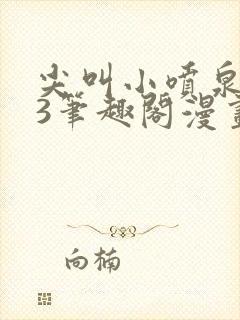 尖叫小喷泉
3笔趣阁漫画
向楠